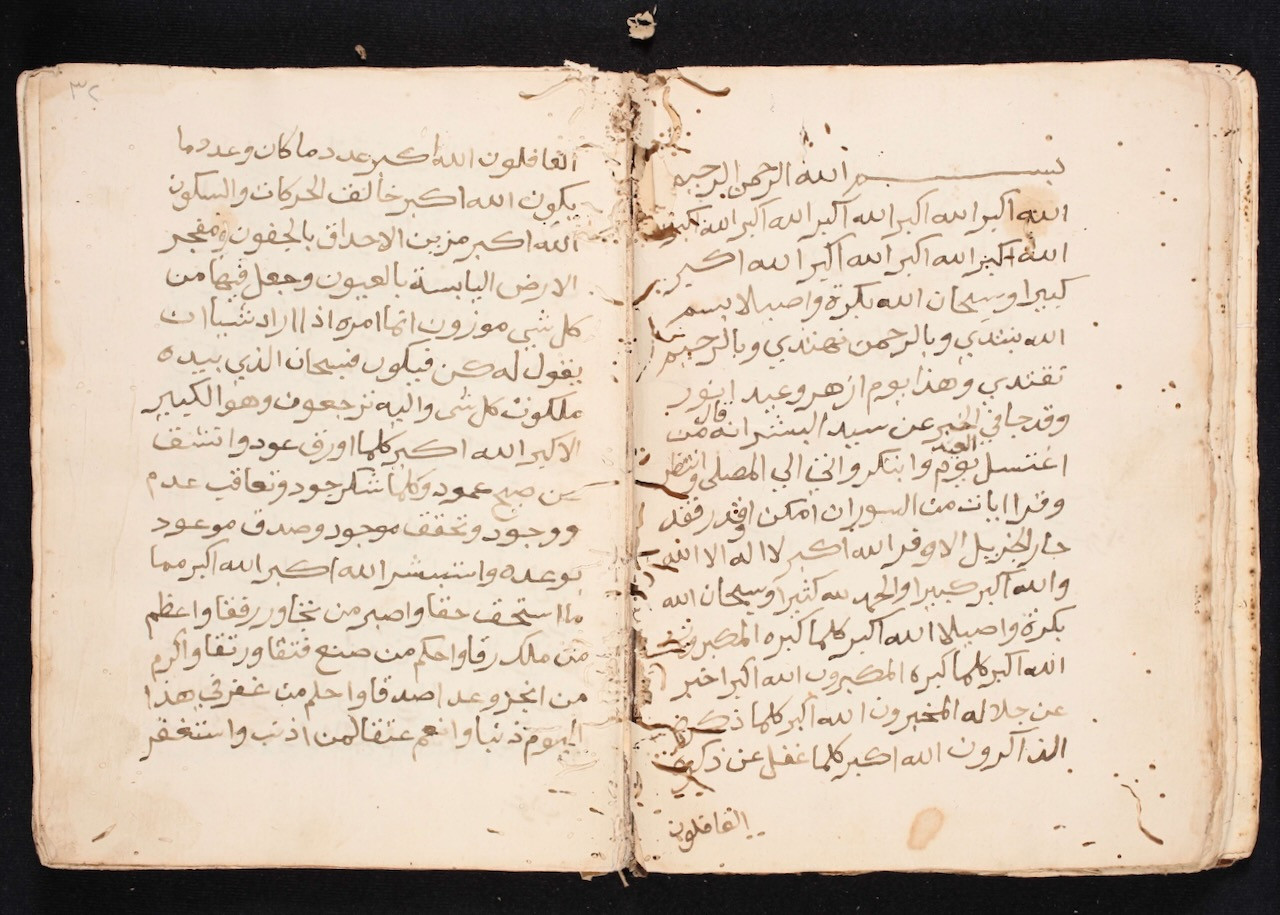 بسم الله الرحمن الرحيم
الله اكبر الله اكبر الله اكبر الله اكبر الله اكبر
الله اكبر الله اكبر الله اكبر الله اكبر
كبيرا وسبحان الله بكرة واصيلا بسم
الله نبتدي وبالرحمن نهتدي وبالرحيم
نقتدي وهذا يوم ازهر وعيد انور
وقد جا في الخبر عن سيد البشر انه قال من
اغتسل يوم العيد وابتكر واتى الي المصلى وانتظر
وقرا ايات من السور ان امكن او قدر فقد
حاز الجزيل الاوفر الله اكبر لا اله الا الله
والله اكبر كبيرا والحمد لله كثيرا وسبحان الله
بكرة واصيلا الله اكبر كلما كبره المكبرون
الله اكبر كلما كبره المكبرون الله اكبر اخبر
عن جلاله المخبرون الله اكبر كلما ذكره
الذاكرون الله اكبر كلما غفل عن ذكره
الغافلون
٣٢
الغافلون الله اكبر عدد ما كان وعدد ما
يكون الله اكبر خالف الحركات والسكون
الله اكبر مزين الاحداق بالجفون ومفجر
الارض اليابسة بالعيون وجعل فيها من
كل شي موزون انما امره اذا اراد شياا ان
يقول له كن فيكون فسبحان الذي بيده
ملكوت كل شى واليه ترجعون وهو الكبير
الاكبر الله اكبر كلما اورق عود وانشق
عن صبح عمود وكلما شكر جود وتعاقب عدم
ووجود وتحقق موجود وصدق موعود
بوعده واستبشر الله اكبر الله اكبر مما
ما استحق حقا واصبر من تجاور رفقا واعظم
من ملك رقا واحكم من صنع فتقا ورتقا واكرم
من انجز وعدا صدقا واحلم من غفر في هذا
اليوم ذنبا وانعم عتقا لمن اذنب واستغفر